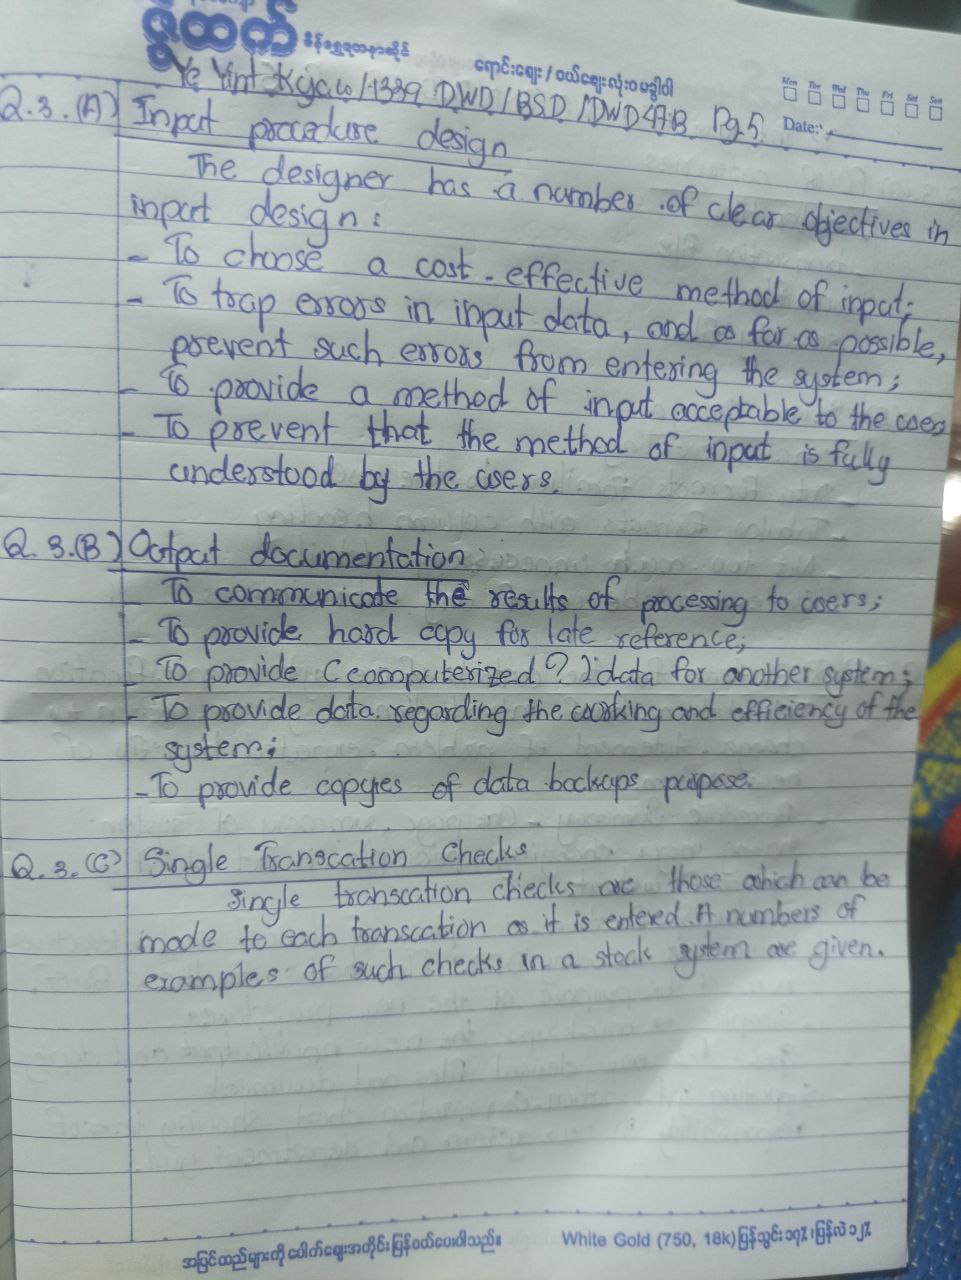 ဇွဲထက်
စိန်ရွှေရတနာဆိုင်
ရောင်းဈေး / ဝယ်ဈေးလုံးဝမခွါပါ
Mon Tue Wed Thu Fri Sat Sun
Ye Yint Kyaw / 1339 DWD / BSD / DWD Pg.5
Date:
Q.3.(A) Input procedure design
The designer has a number of clear objectives in
input design:
- To choose a cost-effective method of input;
- To trap errors in input data, and as far as possible,
prevent such errors from entering the system;
- To provide a method of input acceptable to the user
- To prevent that the method of input is fully
understood by the users.
Q.3.(B) Output documentation
- To communicate the results of processing to users;
- To provide hard copy for late reference;
- To provide (computerized?) data for another system;
- To provide data regarding the working and efficiency of the
system;
- To provide copyies of data backups purpose.
Q.3.(C) Single Transcation Checks
Single transcation checks are those which can be
mode to each transcation as it is entered. A numbers of
examples of such checks in a stock system are given.
အခြင်ထည်များကို ပေါက်ဈေးအတိုင်း ပြန်ဝယ်ပေးပါသည်။
White Gold (750, 18k) ပြန်သွင်း ၁၇% ၊ ပြန်လဲ ၁၂%